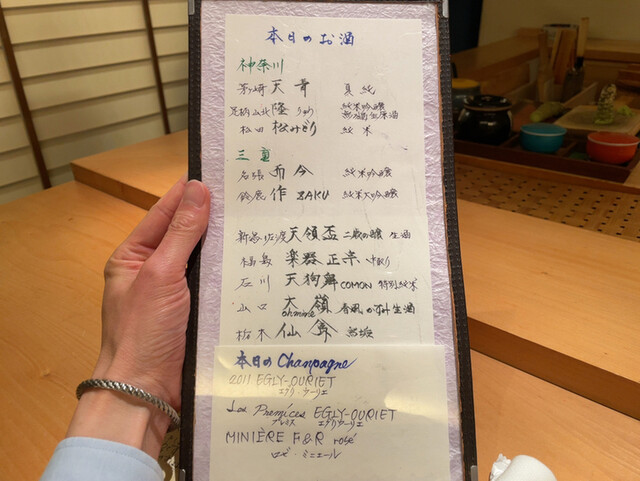 本日のお酒
神奈川
茅ヶ崎 天青 真純
足柄山北 隆 りゅう 純米吟醸 無濾過生原酒
松田 松みどり 純米
三重
名張 而今 純米吟醸
鈴鹿 作 ZAKU 純米大吟醸
新潟 佐渡 天領盃 生酒
福島 楽器正宗 中取り
石川 天狗舞 COMON 特別純米
山口 大嶺 ohmine 春風 かすみ生酒
栃木 仙禽 無垢
本日の Champagne
2011 EGLY-OURIET
エグリ・ウーリエ
Les Prémices EGLY-OURIET
プレミス エグリウーリエ
MINIÈRE F&R rosé
ロゼ・ミニエール